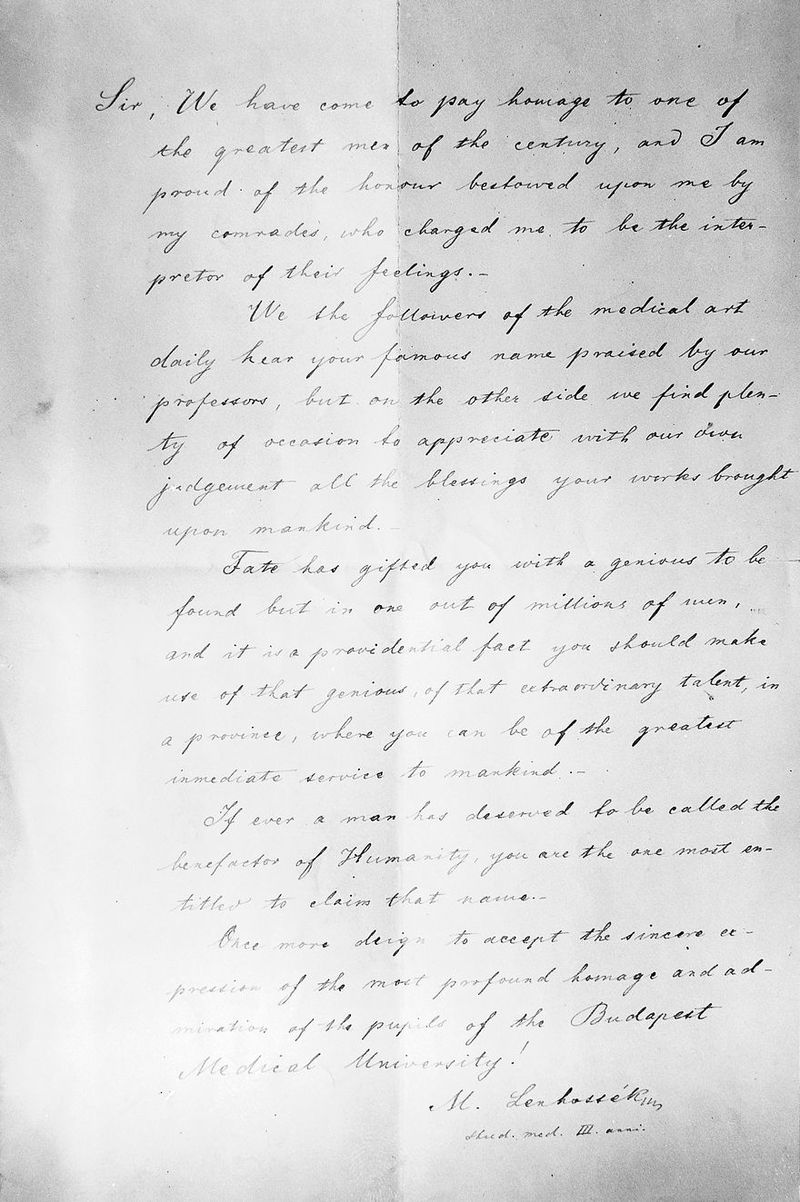 Sir, We have come to pay homage to one of
the greatest men of the century, and I am
proud of the honour bestowed upon me by
my comrades, who charged me to be the inter-
pretor of their feelings.-
We the followers of the medical art
daily hear your famous name praised by our
professors, but on the other side we find plen-
ty of occasion to appreciate with our own
judgement all the blessings your works brought
upon mankind.-
Fate has gifted you with a genious to be
found but in one out of millions of men,
and it is a providential fact you should make
use of that genious, of that extraordinary talent, in
a province, where you can be of the greatest
inmediate service to mankind.-
If ever a man has deserved to be called the
benefactor of Humanity, you are the one most en-
titled to claim that name.-
Once more deign to accept the sincere ex-
pression of the most profound homage and ad-
miration of the pupils of the Budapest
Medical University!
M. Lenhossék
stud. med. III. anni.